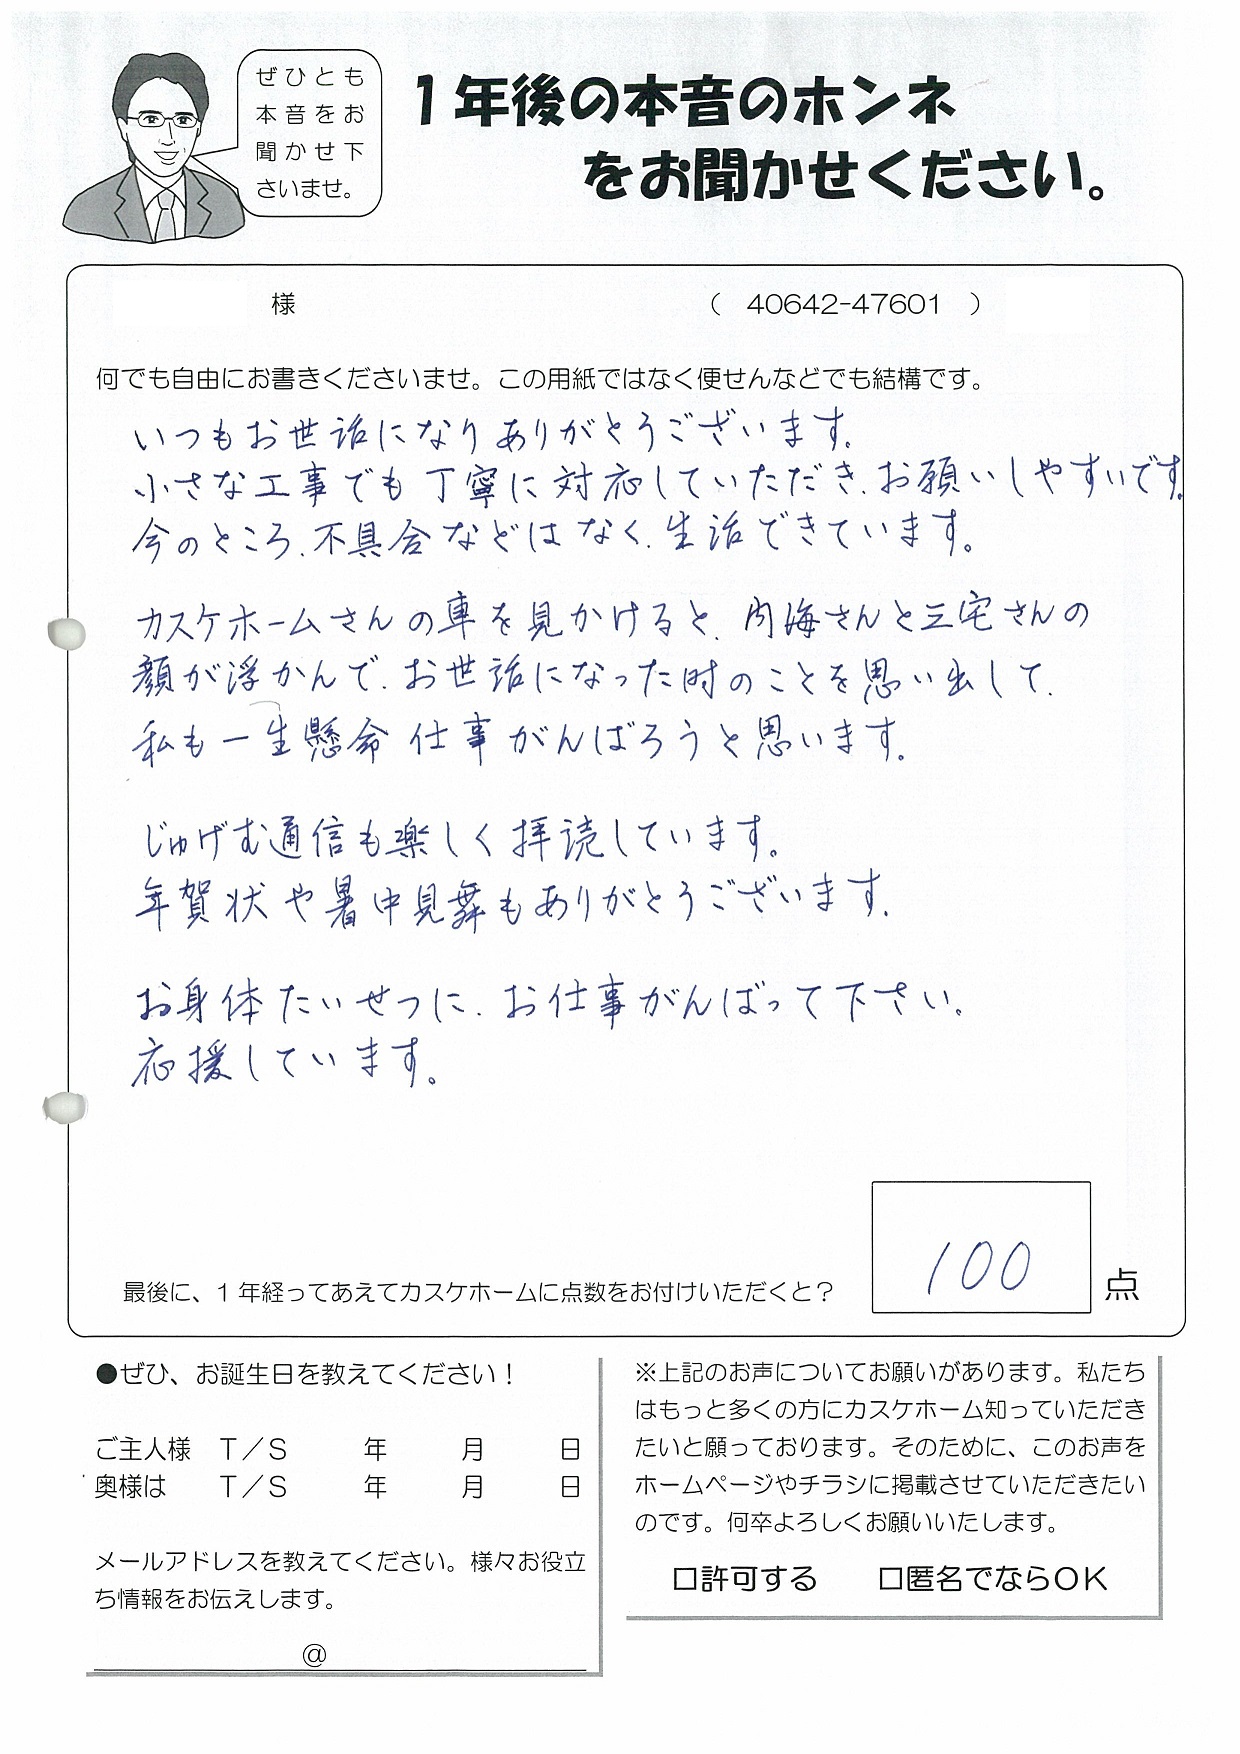 ぜひとも
本音をお
聞かせ下
さいませ。
１年後の本音のホンネ
をお聞かせください。
様　（　40642-47601　）
何でも自由にお書きくださいませ。この用紙ではなく便せんなどでも結構です。
いつもお世話になりありがとうございます。
小さな工事でも丁寧に対応していただき、お願いしやすいです。
今のところ、不具合などはなく、生活できています。
カスケホームさんの車を見かけると、内海さんと三宅さんの
顔が浮かんで、お世話になった時のことを思い出して、
私も一生懸命仕事がんばろうと思います。
じゅげむ通信も楽しく拝読しています。
年賀状や暑中見舞もありがとうございます。
お身体たいせつに、お仕事がんばって下さい。
応援しています。
100
最後に、１年経ってあえてカスケホームに点数をお付けいただくと？　点
●ぜひ、お誕生日を教えてください！
ご主人様　T／S　年　月　日
奥様は　T／S　年　月　日
メールアドレスを教えてください。様々お役立
ち情報をお伝えします。
@
※上記のお声についてお願いがあります。私たち
はもっと多くの方にカスケホーム知っていただき
たいと願っております。そのために、このお声を
ホームページやチラシに掲載させていただきたい
のです。何卒よろしくお願いいたします。
□許可する　□匿名でならOK